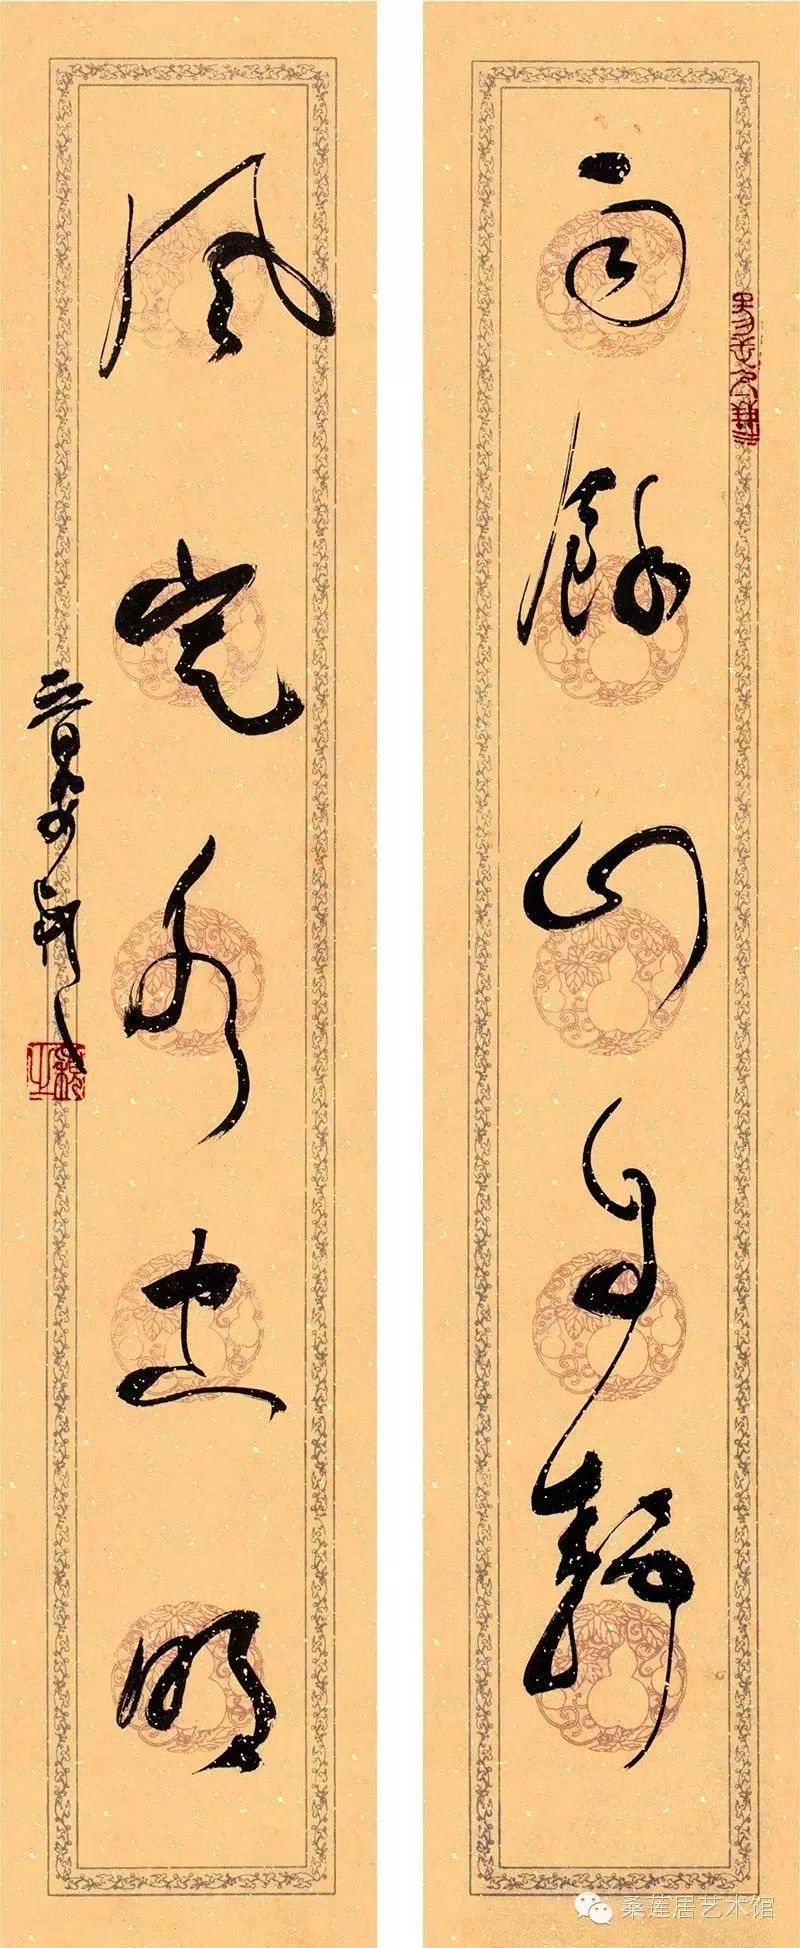 雨餘山自靜
風定水虛明
桑莲居艺术馆